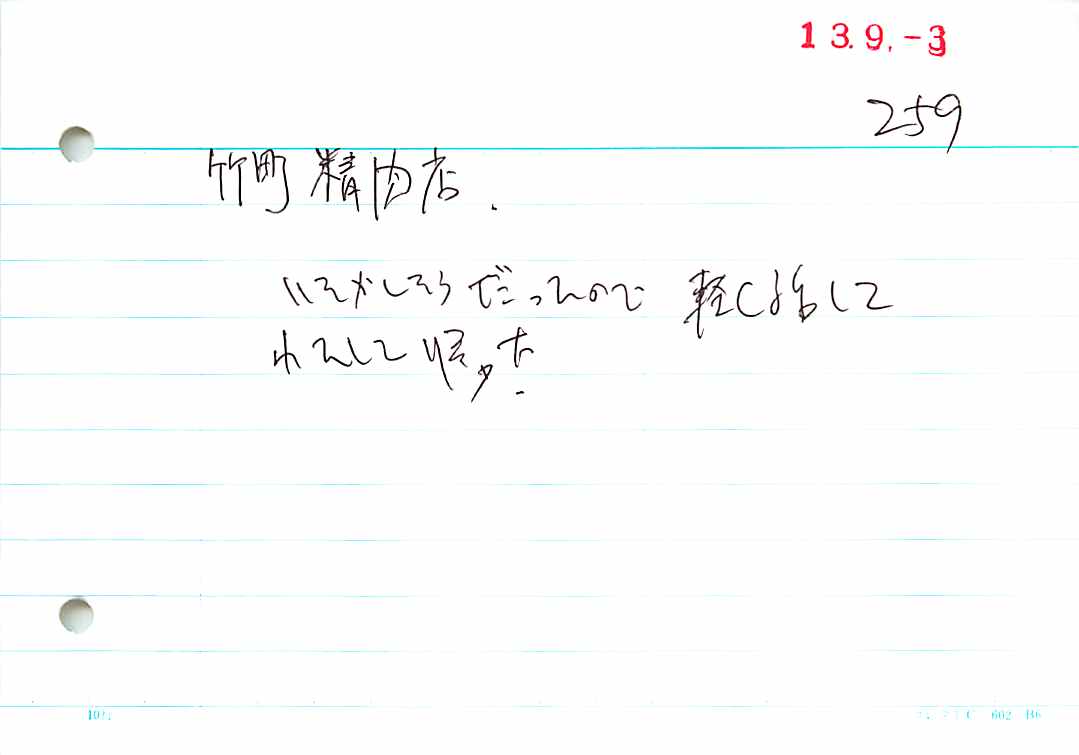 13.9.-3
259
竹町 精肉店.
いそがしそうだったので 軽く話して
して帰った.
602 B6